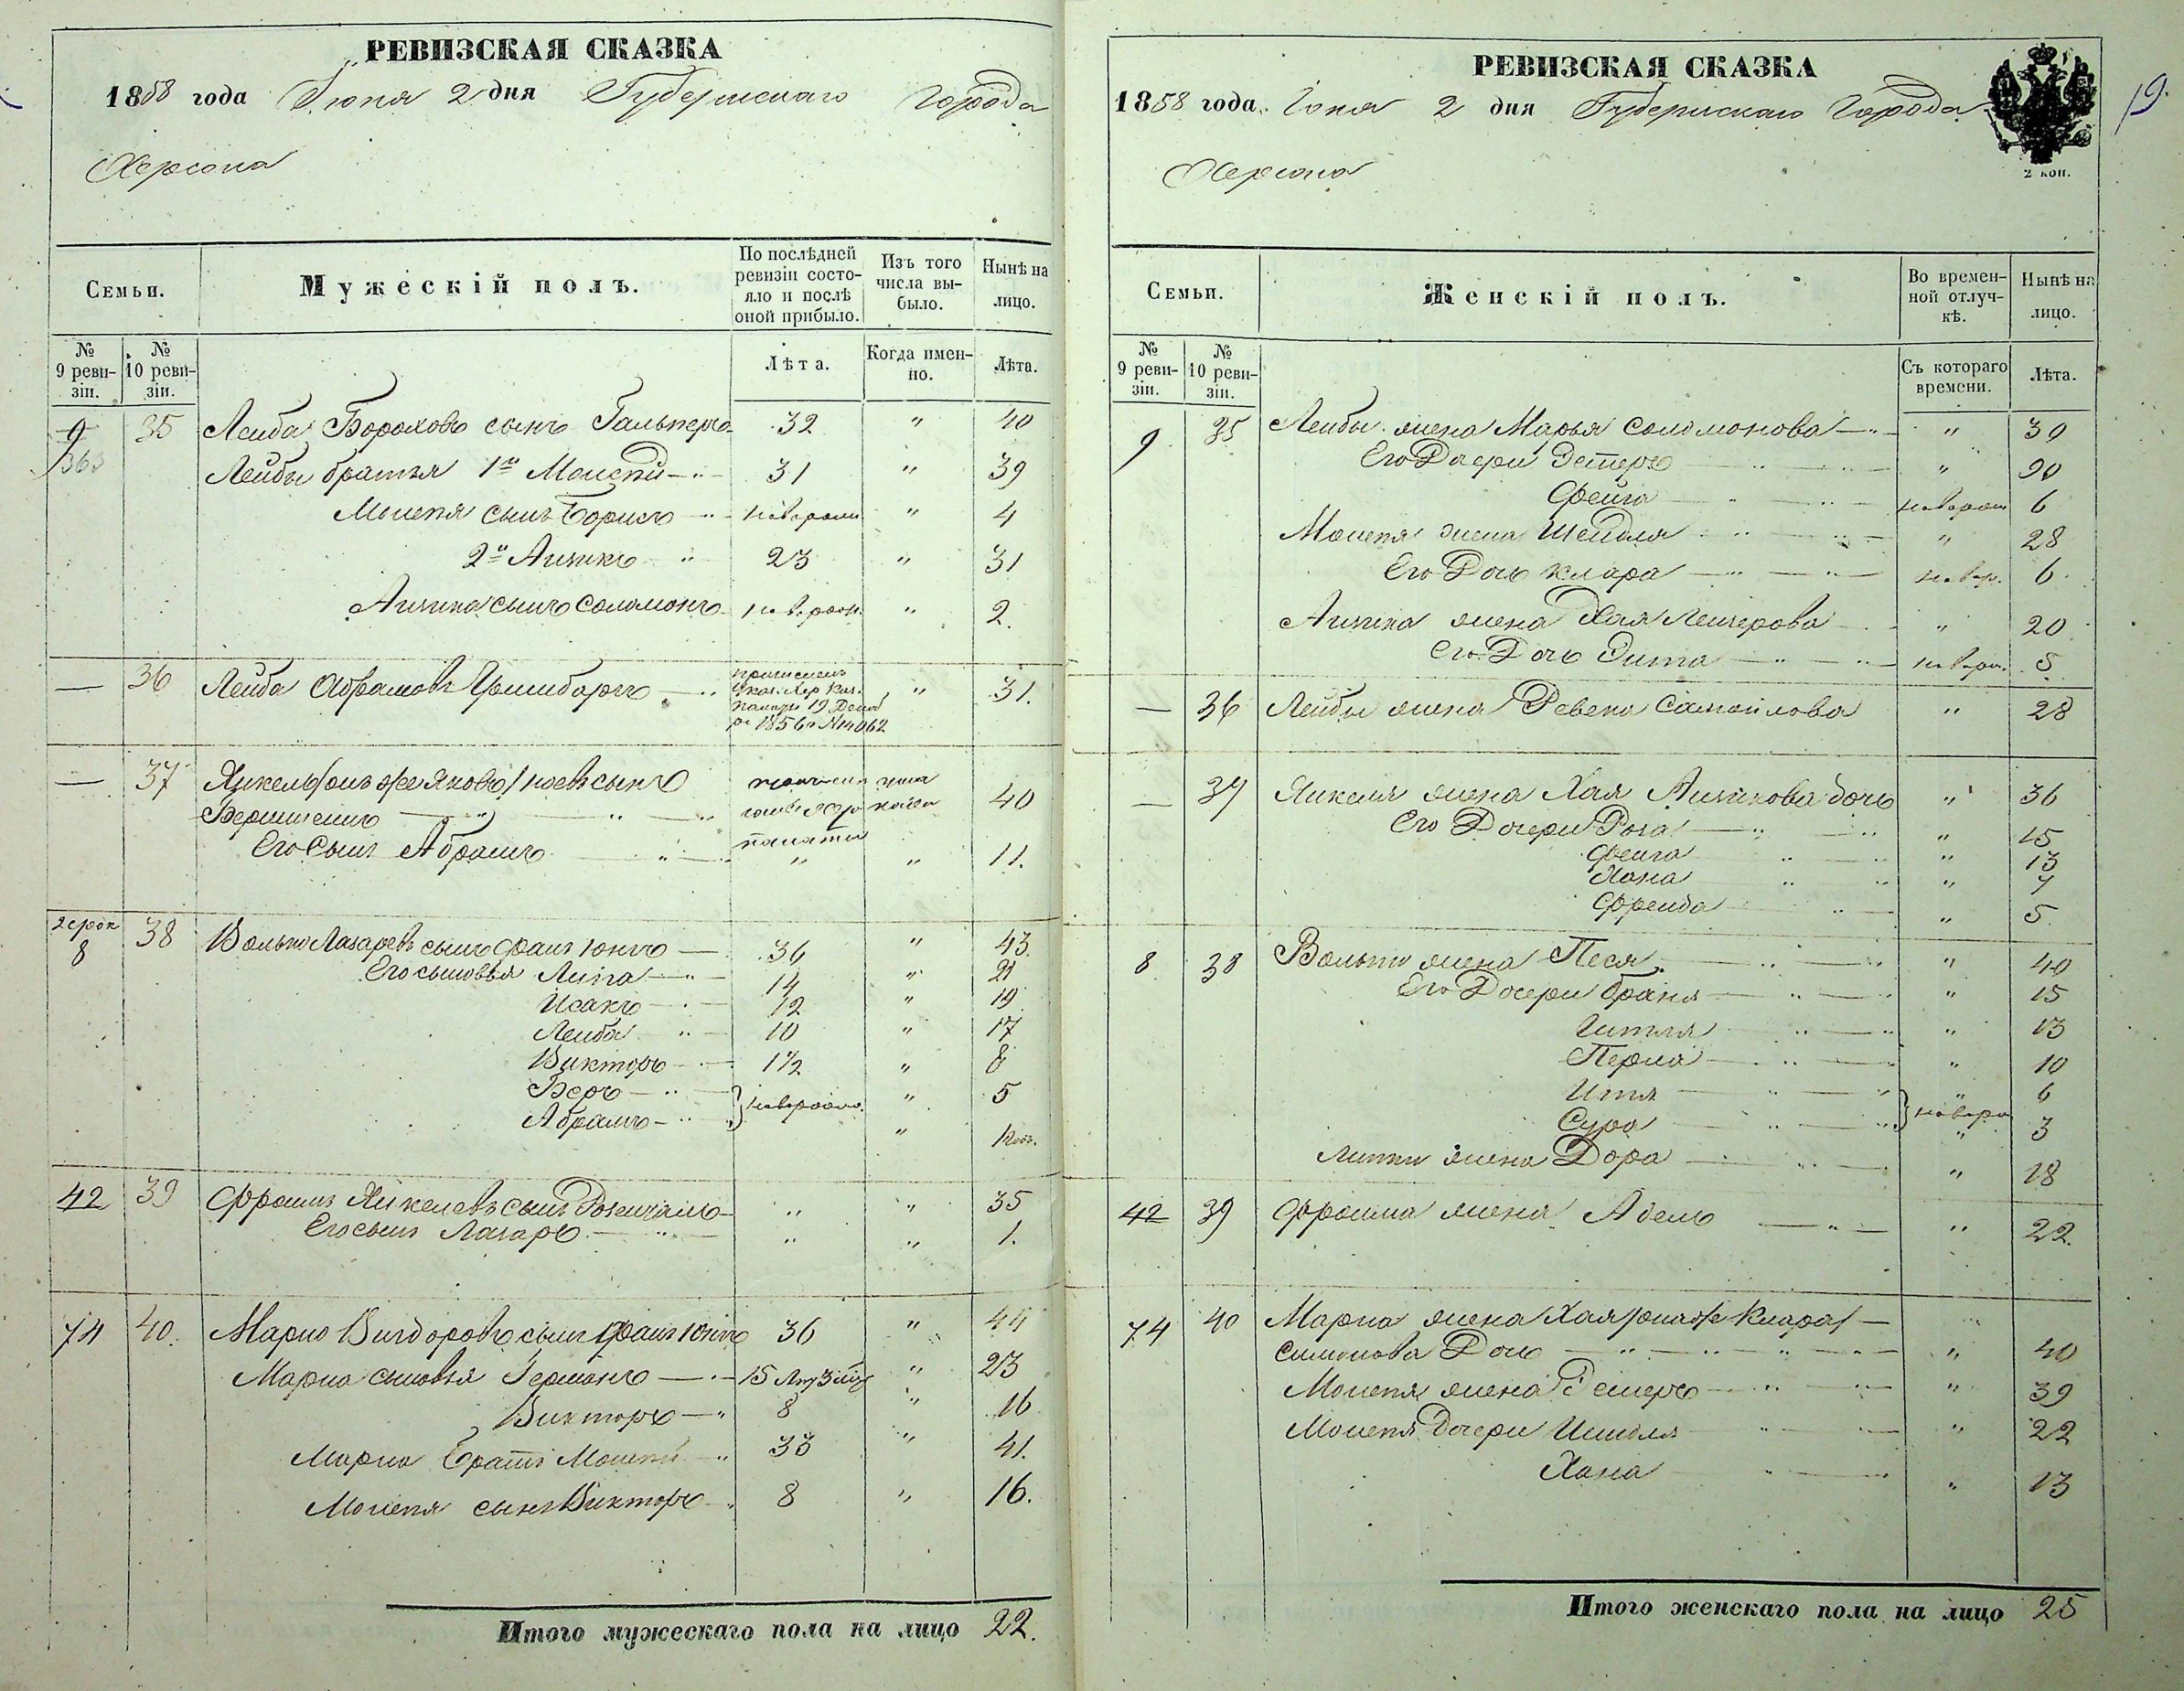 РЕВИЗСКАЯ СКАЗКА
1858 года Іюня 2 дня Губернскаго Города
Херсона
Семьи.
Мужескій полъ.
По послѣдней ревизіи состояло и послѣ оной прибыло.
Изъ того числа выбыло.
Нынѣ на лицо.
№ 9 ревизіи.
№ 10 ревизіи.
Лѣта.
Когда именно.
Лѣта.
9 35 Лейба Бороховъ сынъ Гальперъ 32 " 40
363 Лейбы братья 1й Моисей 31 " 39
Моисея сынъ Борисъ новорожд " 4
2й Аицикъ " 23 " 31
Аицика сынъ Соломонъ новорож. " 2.
— 36 Лейба Абрамовъ 31.
19 Декаб
1856 г. №14062
— 37 Янкель /онъ же Яковъ/ сынъ
40
Его Сынъ Абрамъ " " 11.
8 38 Волько Лазаревъ сынъ Файнъюнгъ — 36 " 43.
Его сыновья Липа 14 " 21
Исакъ 12 " 19
Лейба " 10 " 17
Викторъ 1 1/2 " 8
Беръ " } новорожд. " 5
Абрамъ " "
42 39 Фроимъ Янкелевъ сынъ " " 35
Его сынъ Лазарь " " 1.
74 40. Марко Вигдоровъ сынъ Файнъюнгъ 36 " 44
Марка сыновья Германъ 15 " 23
Викторъ " 8 " 16
Марка братъ Моисей " 33 " 41.
Моисея сынъ Викторъ 8 " 16.
Итого мужескаго пола на лицо 22.
РЕВИЗСКАЯ СКАЗКА
1858 года Іюня 2 дня Губернскаго Города
Херсона
2 коп.
19.
Семьи.
Женскій полъ.
Во временной отлучкѣ.
Нынѣ на лицо.
№ 9 ревизіи.
№ 10 ревизіи.
Съ котораго времени.
Лѣта.
9 35 Лейбы жена Марья Соломонова " 39
Его Дочери Эстеръ " 20
Фейга новорож 6
Моисея жена Шейдля " 28
Его Дочь Клара новор. 6.
Аицика жена Хая " 20
Его Дочь Эита новорж. 5.
— 36 Лейбы жена Ревека Самойлова " 28
— 37 Янкеля жена Хая Аицикова дочь " 36
Его Дочери Роза " 15
Фейга " 13
Хана " 7
Фрейда " 5.
8 38 Вольки жена Песя " 40
Его Дочери Браня " 15
Гитля " 13
Перла " 10
Итя " 6
Сура } новорж " 3
Липки жена Дора " 18
42 39 Фроима жена Адель " 22.
74 40 Марка жена Хая /она же Клара/ —
Симонова Дочь " 40
Моисея жена Эстеръ " 39
Моисея дочери " 22
Хана " 13
Итого женскаго пола на лицо 25